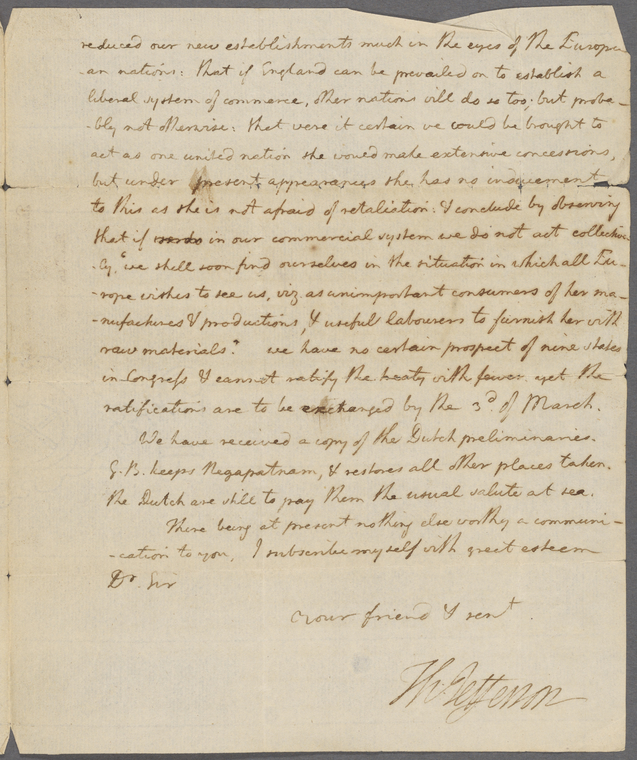 reduced our new establishments much in the eyes of the Europe-
-an nations: that if England can be prevailed on to establish a
liberal system of commerce, other nations will do so too; but proba-
-bly not otherwise: that were it certain we could be brought to
act as one united nation she would make extensive concessions,
but under present appearances she has no inducement
to this as she is not afraid of retaliation. I conclude by observing
that if in our commercial system we do not act collective-
-ly, "we shall soon find ourselves in the situation in which all Eu-
-rope wishes to see us, viz. as unimportant consumers of her ma-
-nufactures & productions, & useful labourers to furnish her with
raw materials." we have no certain prospect of nine states
in Congress & cannot ratify the treaty with fewer. yet the
ratifications are to be exchanged by the 3d. of March.
We have received a copy of the Dutch preliminaries.
G.B. keeps Negapatnam, & restores all other places taken.
the Dutch are still to pay them the usual salute at sea.
There being at present nothing else worthy a communi-
-cation to you, I subscribe myself with great esteem
Dr. Sir
Your friend & servt.
Th: Jefferson